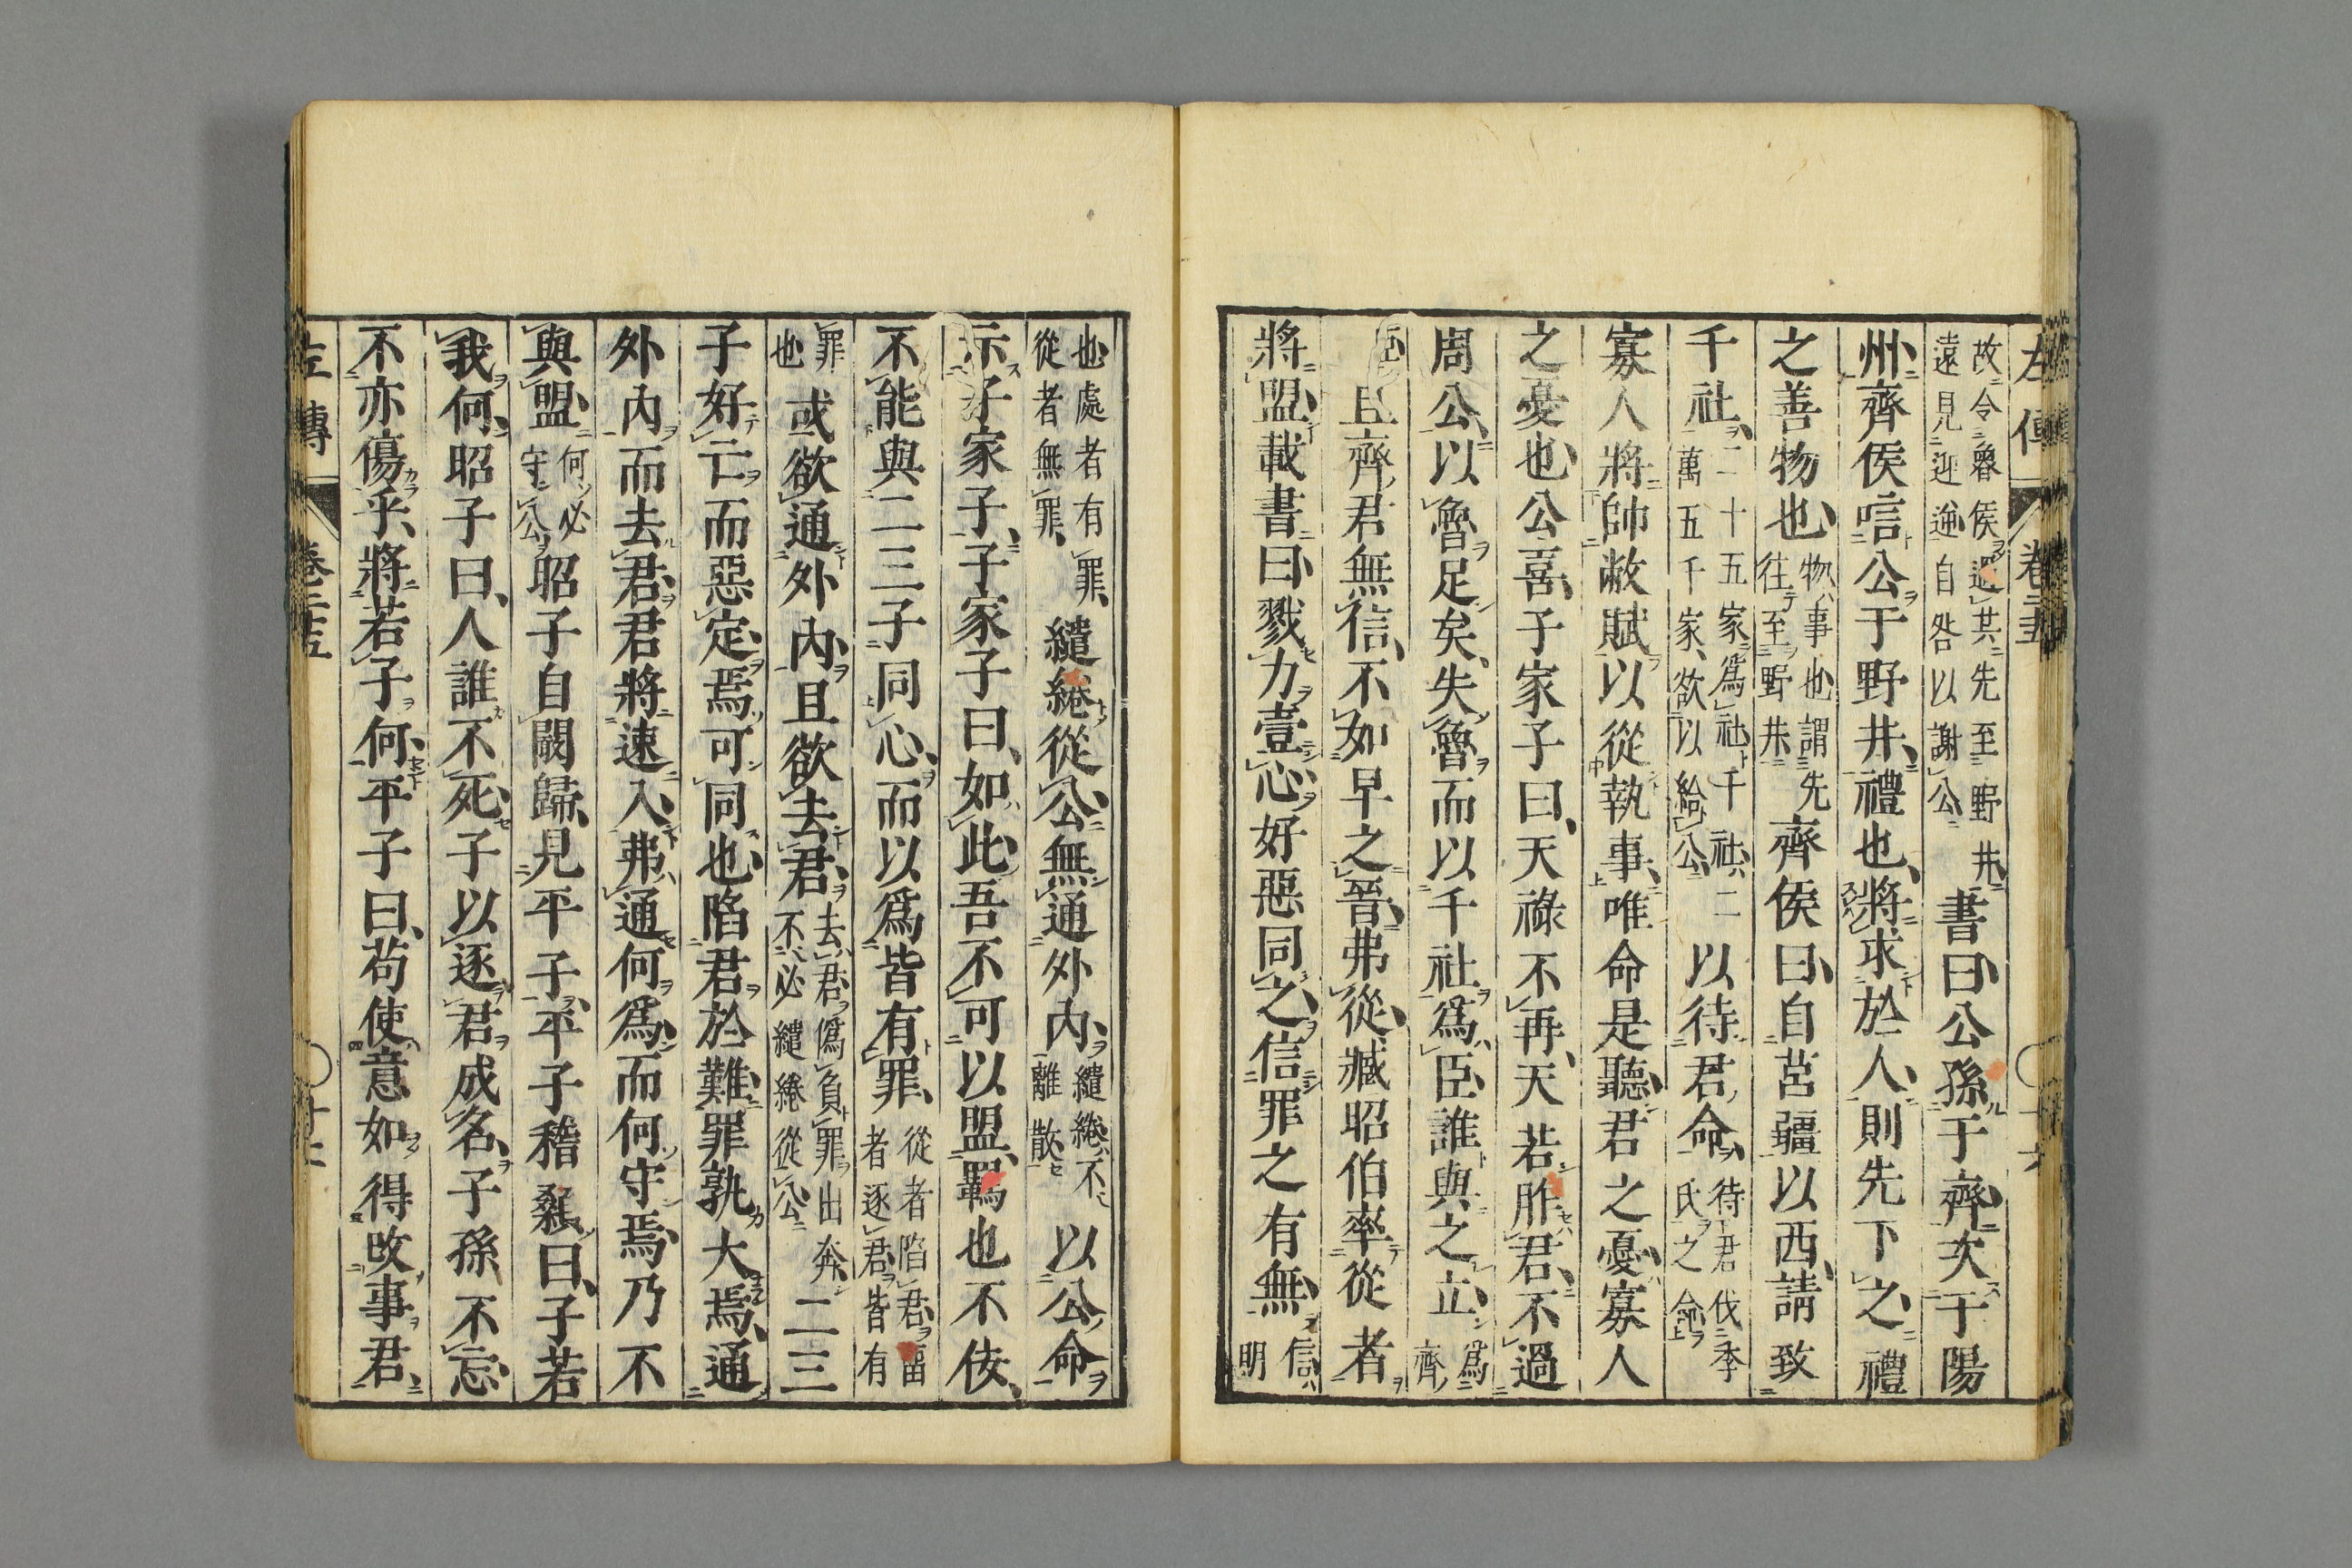 故令魯侯過其先至野井
遠見迎逆自咎以謝公
書曰公孫于齊次于陽
州齊侯唁公于野井禮也將求於人則先下之禮
之善物也
物事也謂先
往至野井
齊侯曰自莒疆以西請致
千社
二十五家爲社千社二
萬五千家欲以給公
以待君命
待君伐季
氏之命
寡人將帥敝賦以從執事唯命是聽君之憂寡人
之憂也公喜子家子曰天祿不再天若胙君不過
周公以魯足矣失魯而以千社爲臣誰與之立
爲
齊
臣
且齊君無信不如早之晉弗從臧昭伯率從者
將盟載書曰戮力壹心好惡同之信罪之有無
信
明
也處者有罪
從者無罪
繾綣從公無通外內
繾綣不
離散
以公命
示子家子子家子曰如此吾不可以盟羈也不佞
不能與二三子同心而以爲皆有罪
從者陷君留
者逐君皆有
罪
也
或欲通外內且欲去君
去君僞負罪出奔
不必繾綣從公
二三
子好亡而惡定焉可同也陷君於難罪孰大焉通
外內而去君君將速入弗通何爲而何守焉乃不
與盟
何必
守公
昭子自闞歸見平子平子稽顙曰子若
我何昭子曰人誰不死子以逐君成名子孫不忘
不亦傷乎將若子何平子曰苟使意如得改事君
左傳 卷二十五